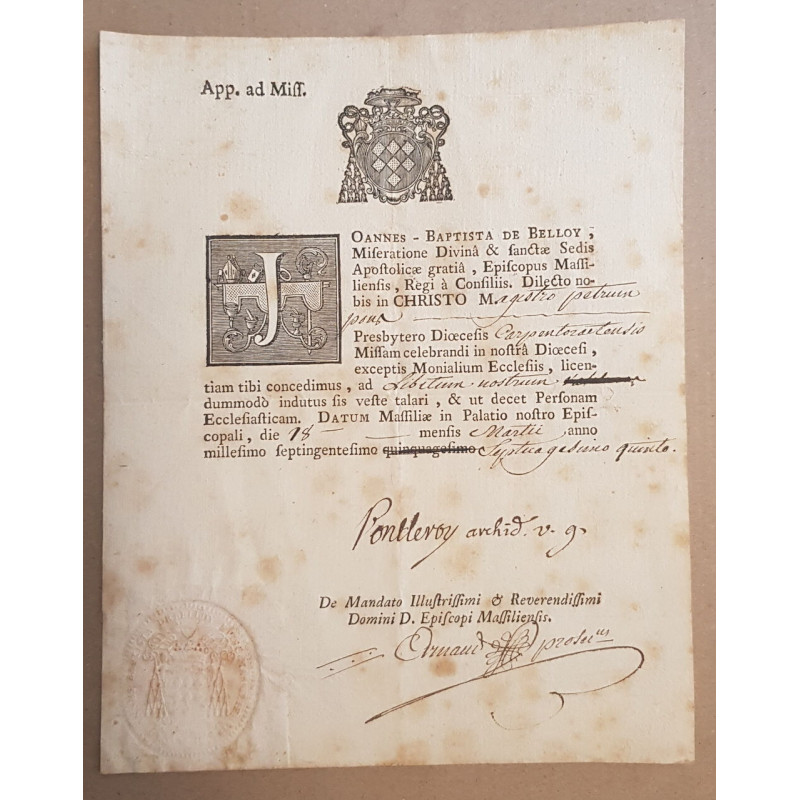 App. ad Miſſ.
JOANNES - BAPTISTA DE BELLOY,
Miſeratione Divinâ & ſanctæ Sedis
Apoſtolicæ gratiâ, Epiſcopus Maſſi-
lienſis, Regi à Conſiliis. Dilecto no-
bis in CHRISTO Magistro petrum
pons
Presbytero Diœceſis Carpentoractensis
Miſſam celebrandi in noſtrâ Diœceſi,
exceptis Monialium Eccleſiis, licen-
tiam tibi concedimus, ad Libitum nostrum
dummodò indutus ſis veſte talari, & ut decet Perſonam
Eccleſiaſticam. DATUM Maſſiliæ in Palatio noſtro Epiſ-
copali, die 18 menſis Martii anno
milleſimo ſeptingenteſimo quinquageſimo Septuagesimo quinto.
archid. v. g.
De Mandato Illuſtriſſimi & Reverendiſſimi
Domini D. Epiſcopi Maſſilienſis.
Arnaud prosec.ius